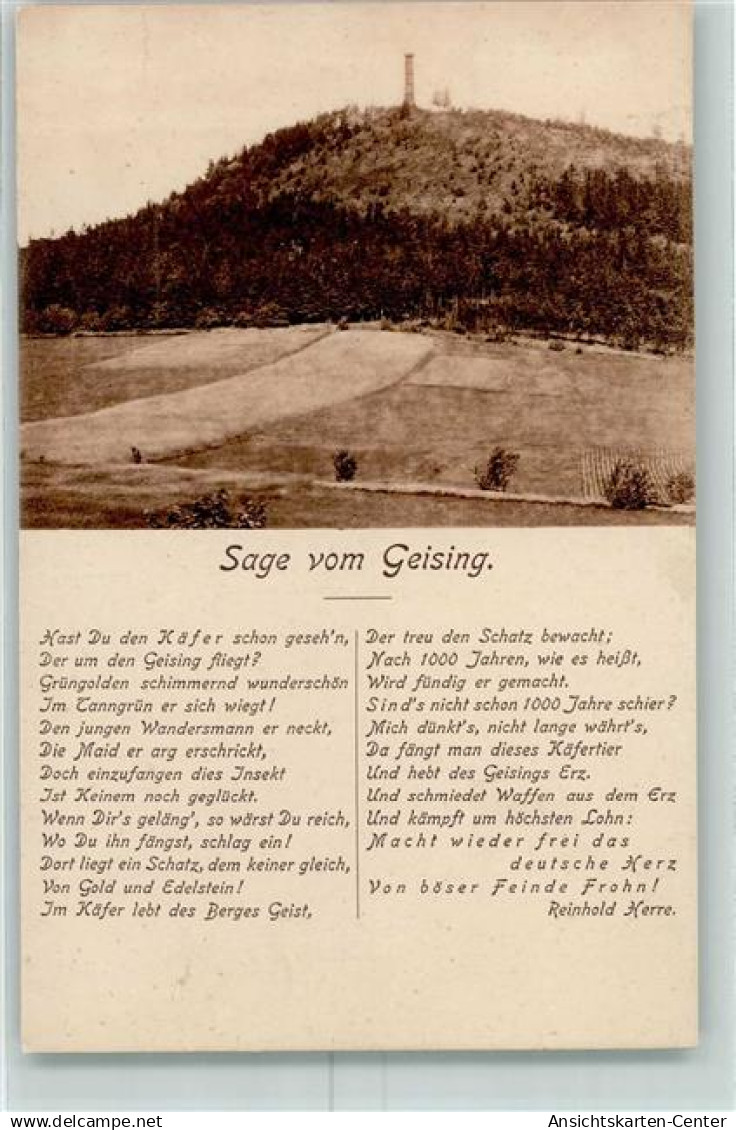 Sage vom Geising.
Hast Du den Käfer schon geseh'n,
Der um den Geising fliegt?
Grüngolden schimmernd wunderschön
Im Tanngrün er sich wiegt!
Den jungen Wandersmann er neckt,
Die Maid er arg erschrickt,
Doch einzufangen dies Insekt
Ist Keinem noch geglückt.
Wenn Dir's geläng', so wärst Du reich,
Wo Du ihn fängst, schlag ein!
Dort liegt ein Schatz, dem keiner gleich,
Von Gold und Edelstein!
Im Käfer lebt des Berges Geist,
Der treu den Schatz bewacht;
Nach 1000 Jahren, wie es heißt,
Wird fündig er gemacht.
Sind's nicht schon 1000 Jahre schier?
Mich dünkt's, nicht lange währt's,
Da fängt man dieses Käfertier
Und hebt des Geisings Erz.
Und schmiedet Waffen aus dem Erz
Und kämpft um höchsten Lohn:
Macht wieder frei das
deutsche Herz
Von böser Feinde Frohn!
Reinhold Herre.
delcampe.net
Ansichtskarten-Center